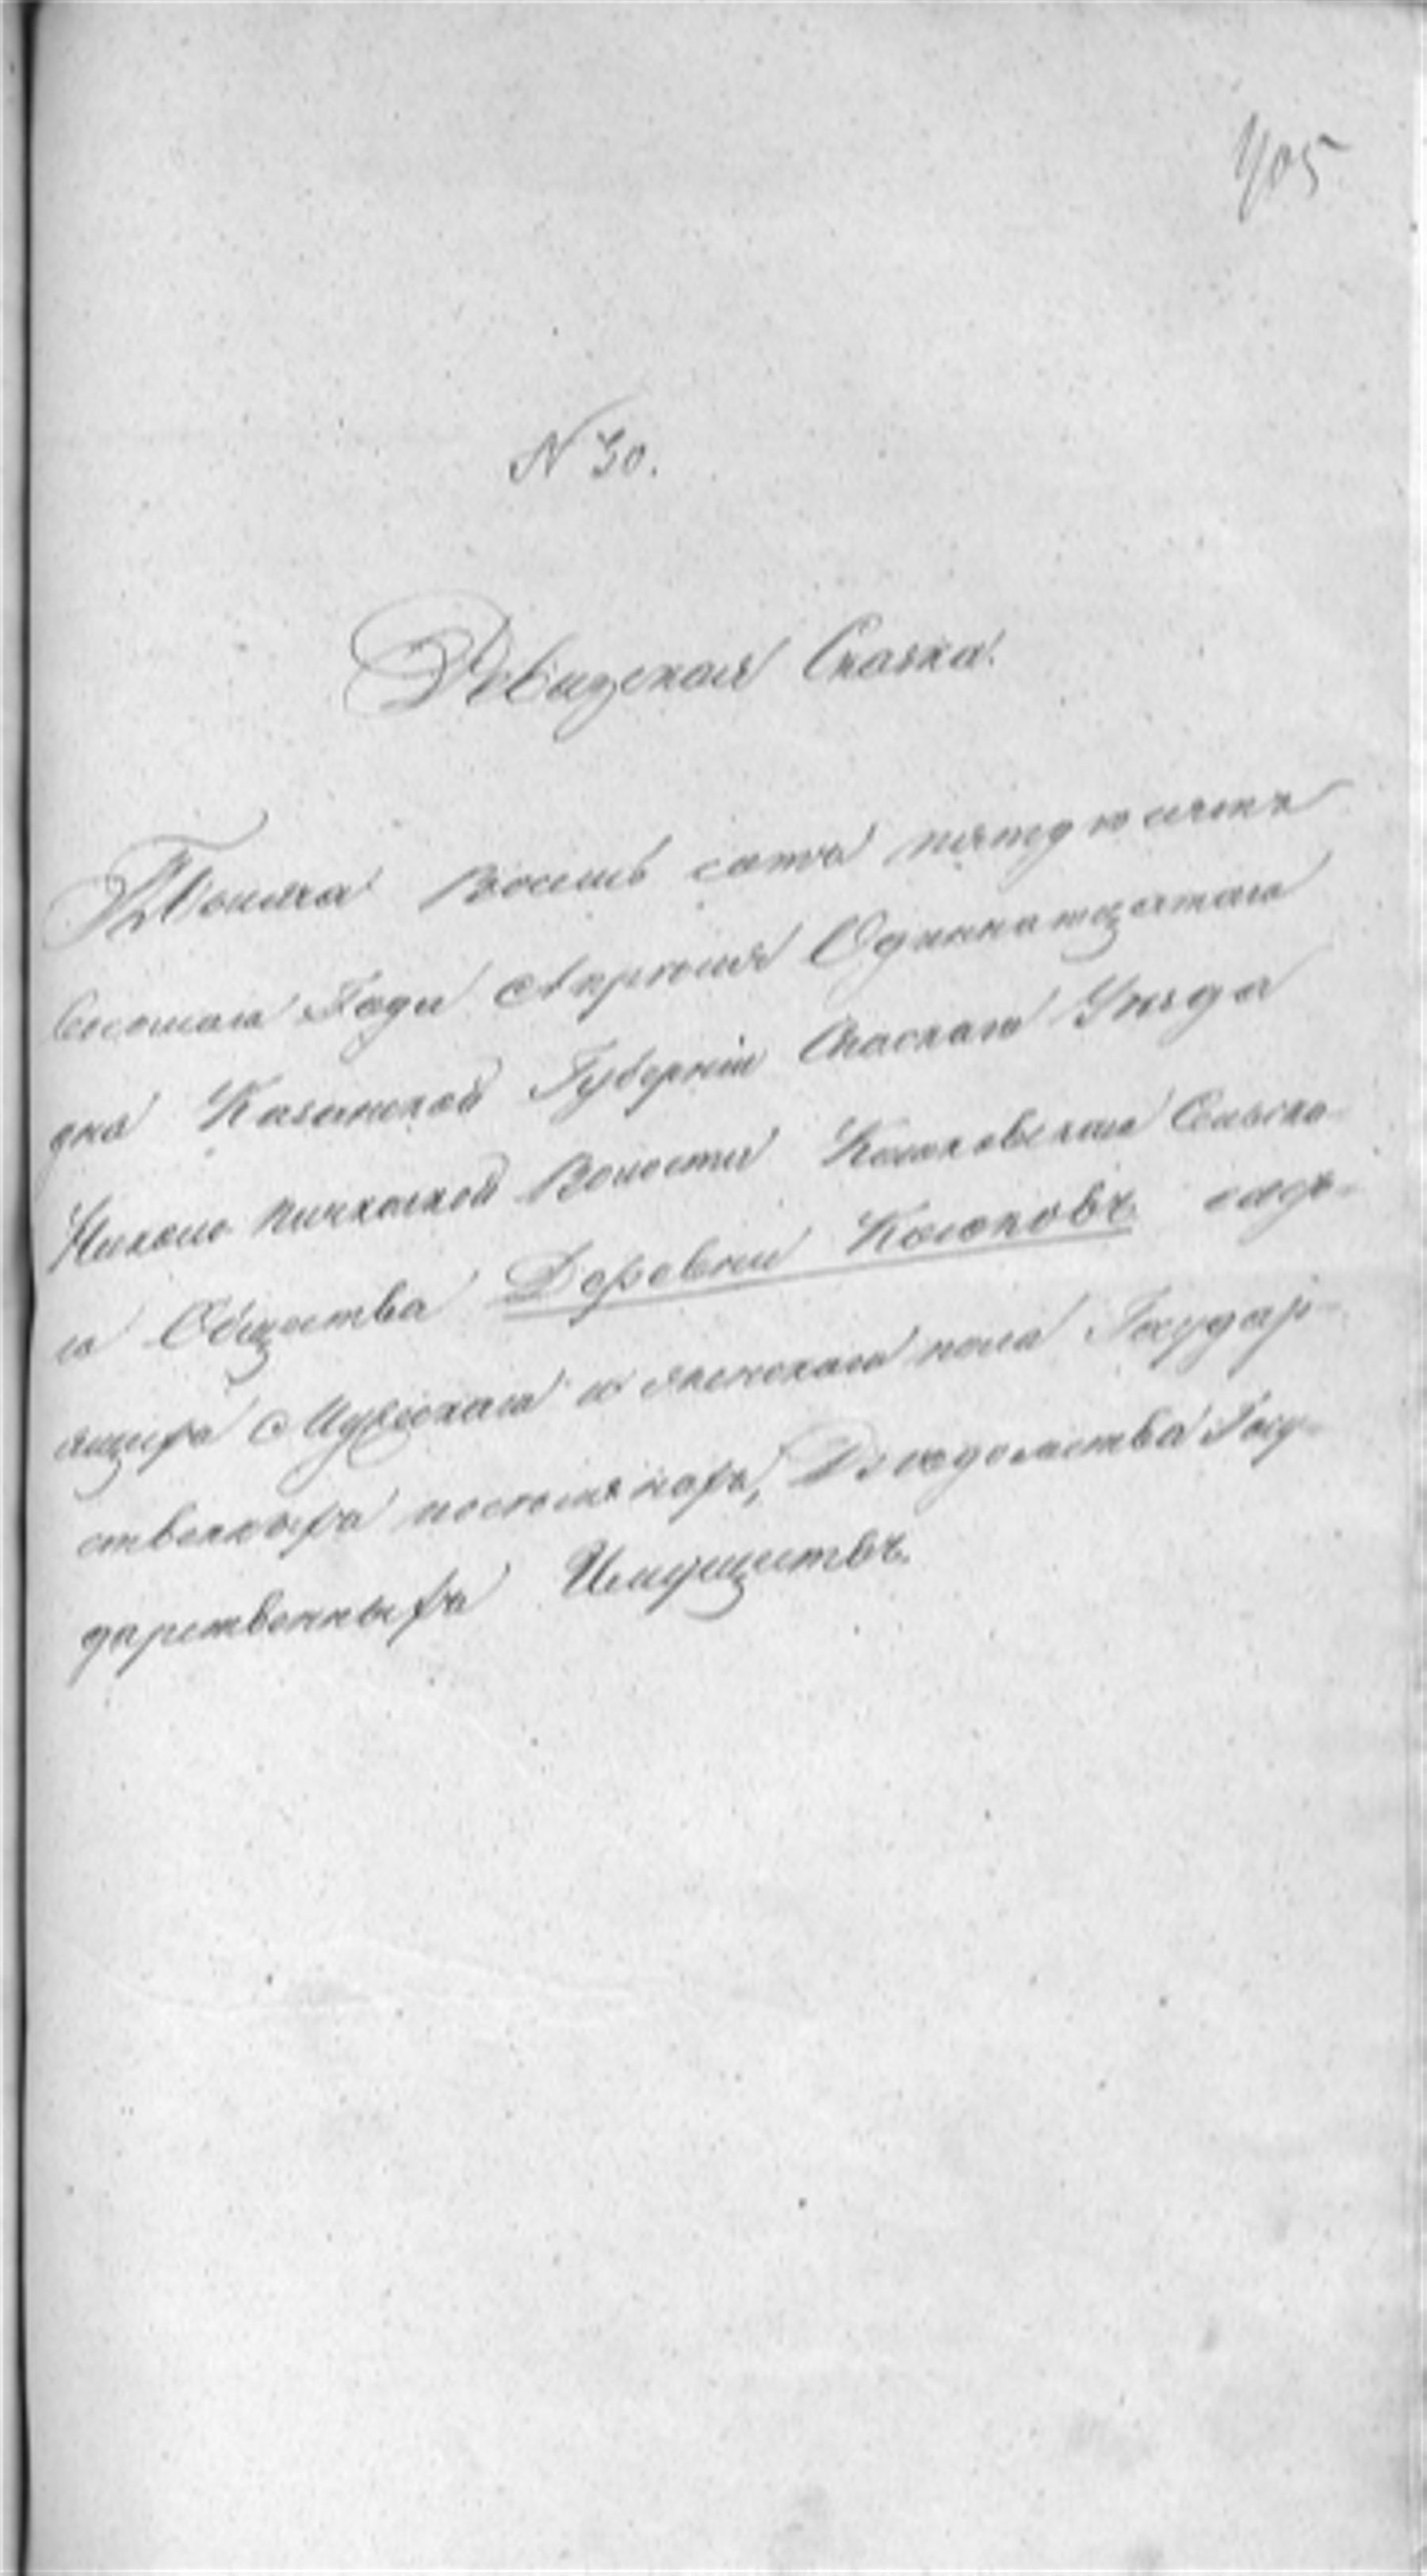 405
N 30.
Ревизская Сказка.
Тысяча восемь сотъ пятдесятъ
Восьмаго Года Апреля Одиннатцатаго
дня Казанской Губерніи Спаскаго Уезда
Николо Пичкаской Волости Кокоховскаго Сельска-
го Общества Деревни Кокоховъ
ящихъ Мужескаго и Женскаго пола Государ-
ственныхъ поселянахъ, Ведомства Госу-
дарственныхъ Имуществъ.